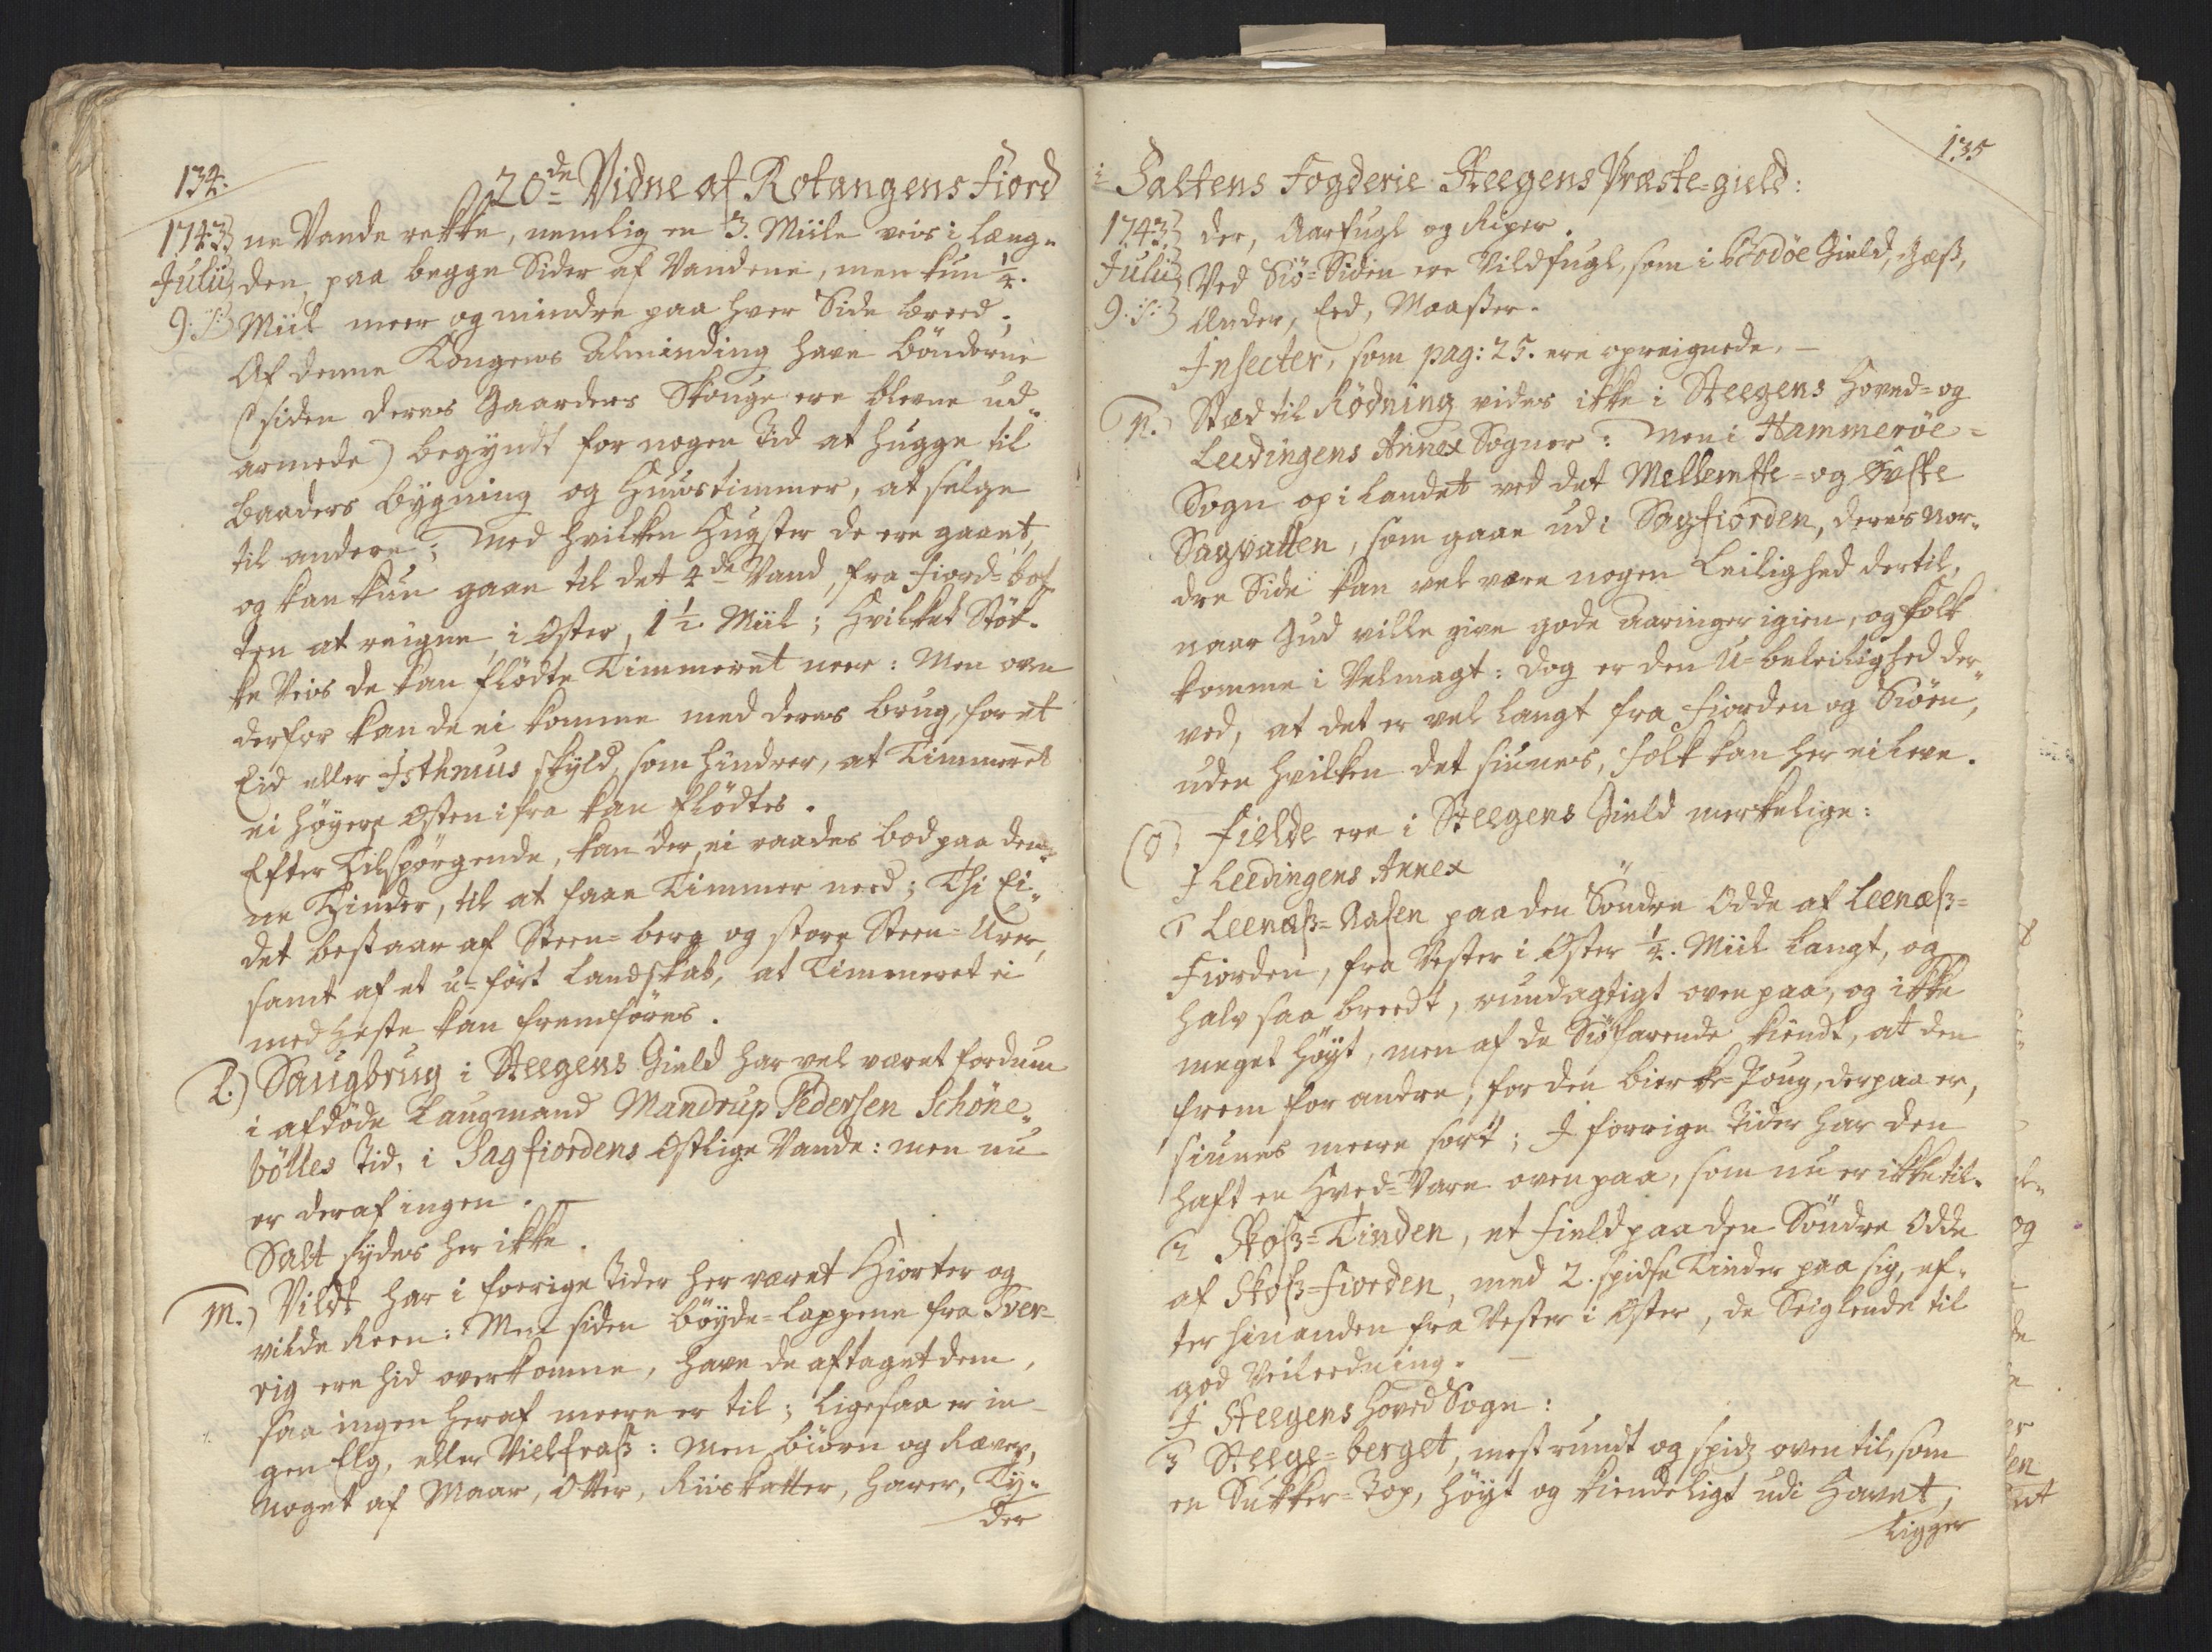 134.
20de Vidne af Rotangens Fiord
1743 ne Vande rekke, nemlig en 3. Miile veis i læng-
Julii den, paa begge Sider af Vandene, men kun 1/4.
9: Miil meer og mindre paa hver Side breed;
Af denne Kongens Alminding have Bönderne
(siden deres Gaarders Skouge ere blevne ud-
armede) begyndt for nogen Tid at hugge til
Baaders bygning og Huustimmer, at selge
til andere; Med hvilken Hugster de ere gaaet,
og kan kun gaae til det 4de Vand, fra Fiord-bot-
ten at reigne, i Öster, 1 1/2 Miil; Hvilket Stök-
ke Veis de kan flödte Timmeret neer: Men oven
derfor kan de ei komme med deres brug, for et
Eid eller Isthmus skyld, som hindrer, at Timmeret
ei höyere Östen ifra kan flödtes.
Efter Tilspörgende, kan der ei raades bod paa den-
ne Hinder, til at faae Timmer need; Thi Ei-
det bestaar af Steen-berg og store Steen-Urer,
samt af et u-fört Landskab, at Timmeret ei
med Heste kan fremföres.
L.) Saugbrug i Steegens Gield har vel været fordum
i afdöde Laugmand Mandrup Pedersen Schöne-
bölles Tid, i Sagfiordens Östlige Vande: men nu
er deraf ingen.
Salt sydes her ikke.
M.) Vildt har i forrige Tider her været Hiorter og
vilde Reen: Men siden böyde-Lappene fra Sver-
rig ere hid overkomne, have de aftaget dem,
saa ingen heraf meere er til; ligesaa er in-
gen Elg, eller Vielfraß: Men biörn og Ræver,
Noget af Maar, Otter, Riiskatter, Harer, Ty-
der
135
i Saltens Fogderie Steegens Præste-gield:
1743 der, Aarfugl og Riper.
Julii Ved Siö-Siden ere Vildfugl, som i Bodöe Gield, Gæß,
9: Ænder, Eed, Maaßer.
Insecter, som pag: 25. ere opreignede.
N.) Stæd til Rödning vides ikke i Steegens Hoved- og
Leedingens Annex Sogner: Men i Hammeröe-
Sogn op i Landet ved det Mellemste- og Öfste
Sagvatten, som gaae ud i Sagfiorden, deres Nor-
dre Side kan vel være nogen Leilighed dertil,
naar Gud ville give gode Aaringer igien, og folk
komme i Velmagt: Dog er den U-beleilighed der-
ved, at det er vel langt fra Fiorden og Siöen,
uden hvilken det siunes, Folk kan her ei leve.
(O) Fielde ere i Steegens Gield merkelige:
I Leedingens Annex
1 Leenæß-Aasen paa den Söndre Odde af Leenæß-
Fiorden, fra Vester i Öster 1/4. Miil langt, og
halv saa breedt, rundagtigt oven paa, og ikke
meget höyt, men af de Siöfarende kiendt, at den
frem for andre, for den bierke-Skoug, derpaa er,
siunes meere sort; I forrige Tider har den
haft en Hved-Vare oven paa, som nu er ikke til.
2 Skoß-Tinden, et Field paa den Söndre Odde
af Skoß-Fiorden, med 2. spidse Tinder paa sig, ef-
ter hinanden fra Vester i Öster, de Seiglende til
god Veileedning.
I Steegens Hoved Sogn:
3 Steege-berget, mest rundt og spidz oven til, som
en Sukker-Top, höyt og kiendeligt udi Havet,
ligger